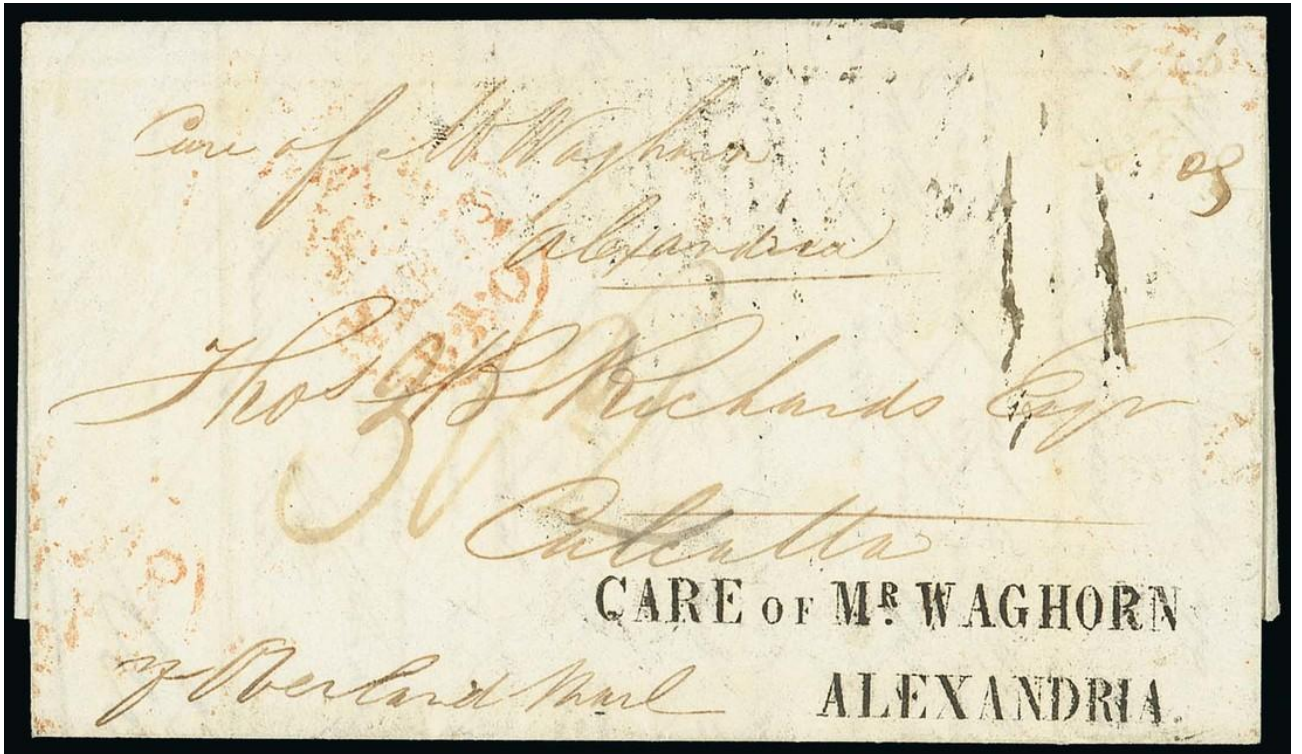 Care of Mr Waghorn
Alexandria
Thos B Richards Esqr
Calcutta
CARE OF MR. WAGHORN
ALEXANDRIA.
pr Overland Mail